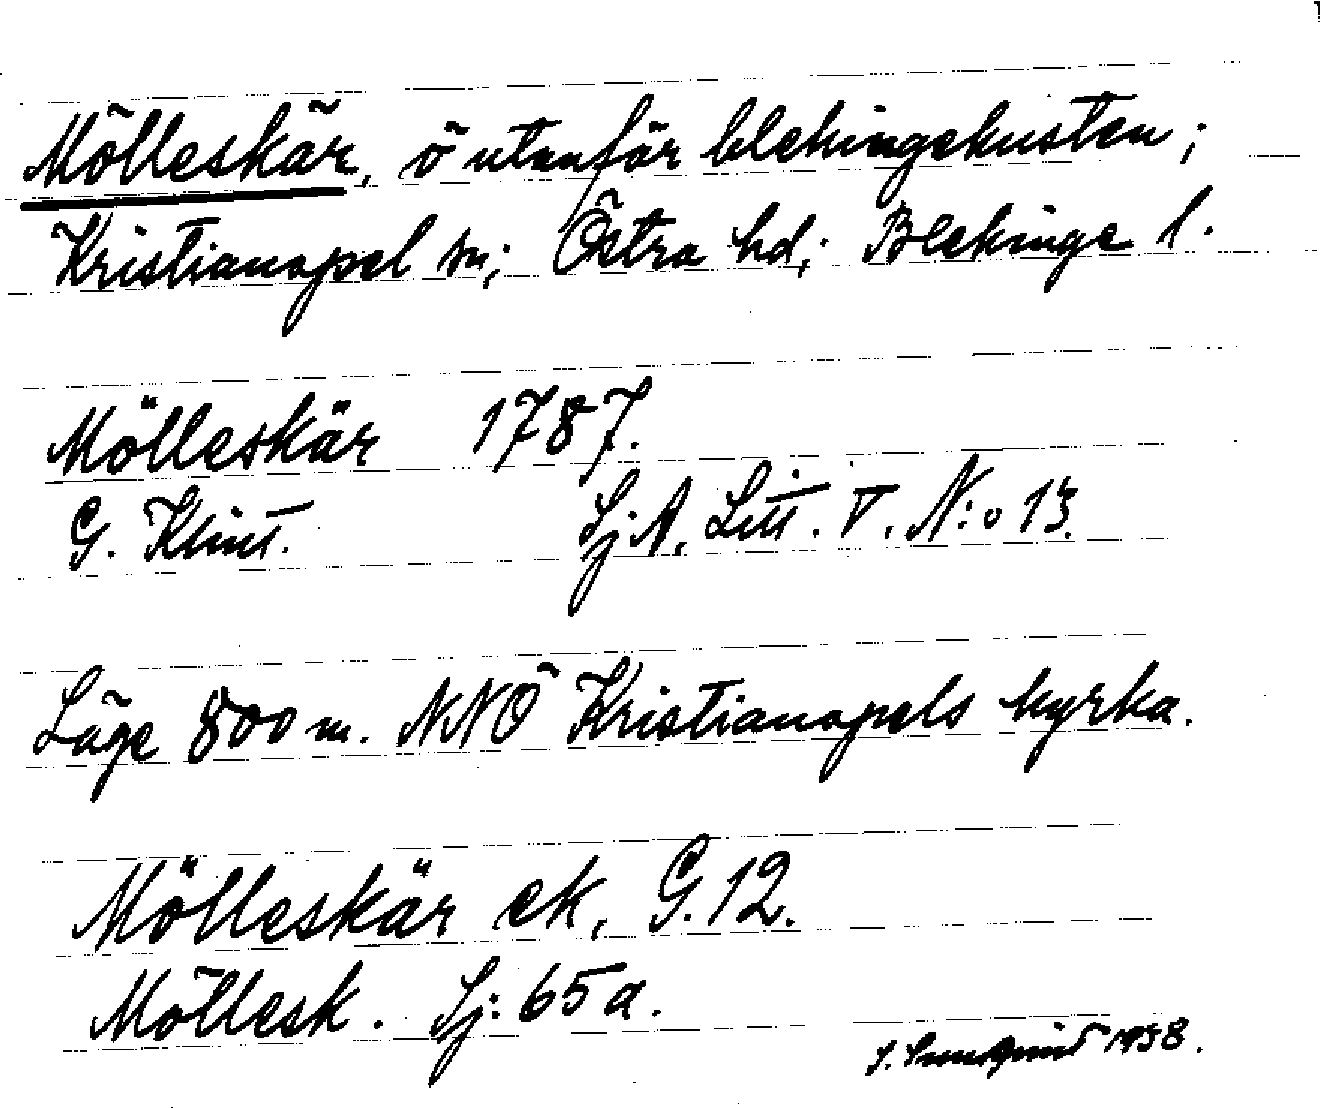 Mölleskär, ö utanför blekingekusten;
Kristianopel sn; Östra hd; Blekinge l.
Mölleskär 1787.
G. Klint. Sj.A, Litt. V. N:o 13.
Läge 800 m. NNÖ Kristianopels kyrka.
Mölleskär ek, G. 12.
Möllesk. Sj: 65 a.
S. 1938.